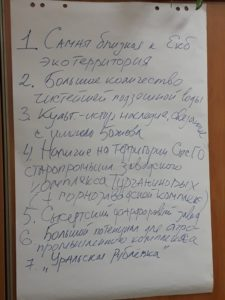 1 Самая близкая к Екб
экотерритория
2. Большие количество
чистейшей подземной воды
3 Культ-истор наследие, связанное
с именем Бажова
4 Наличие на территории СысГО
старопромышл заводского
комплекса Турчаниновых
(I горнозаводской комплекс)
5. Сысертский фарфоровый завод
6 Большой потенциал для агро-
промышленного комплекса
7 "Уральская Рублевка"